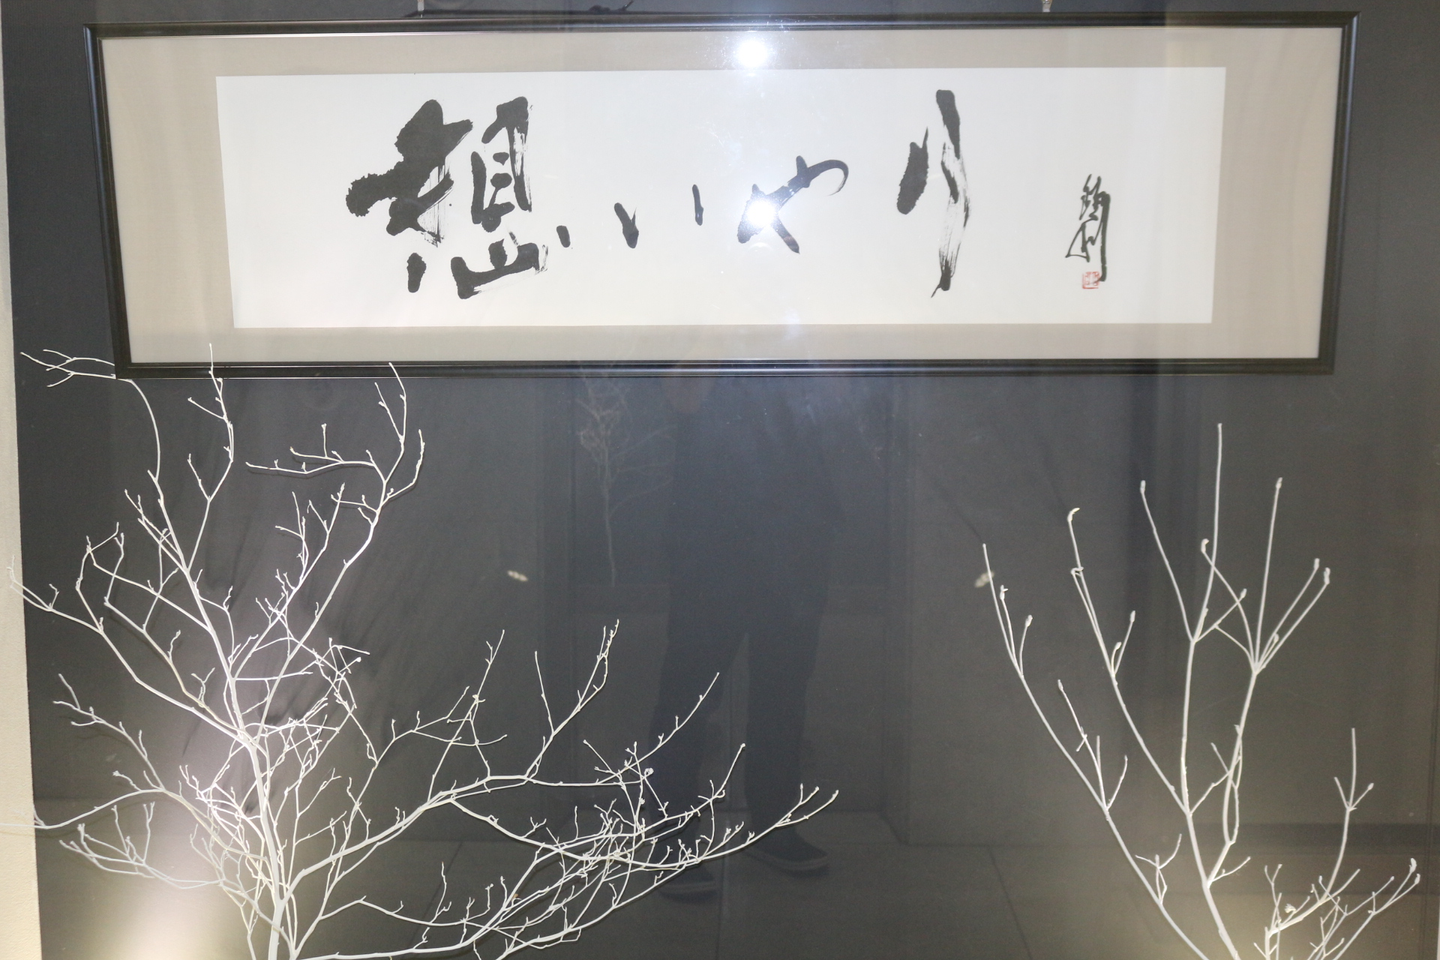 想いやり